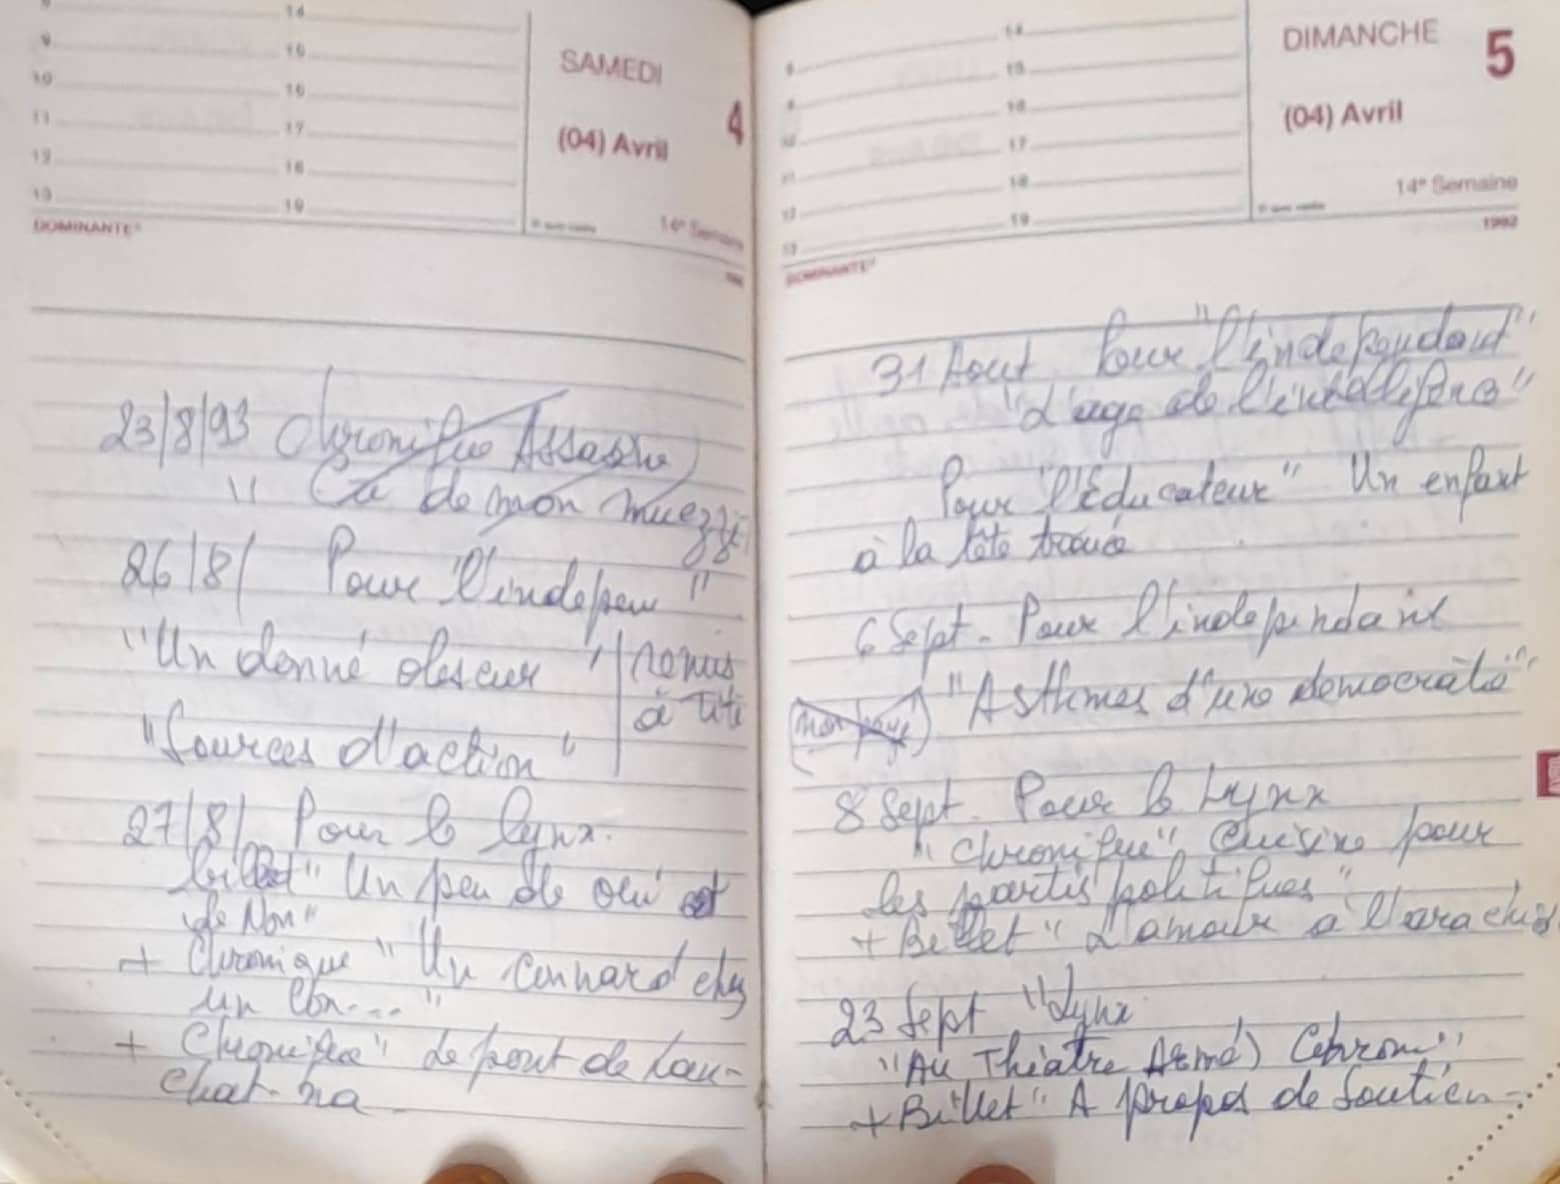 14
9 15
10 16
11 17
12 18
13 19
SAMEDI
4
(04) Avril
14e Semaine
DOMINANTE
23/8/93 Chronique Assassin
" Ce de mon muezzi
26/8/ Pour "l'indepen"
"Un donné obscur" remis
à Titi
"Sources d'action"
27/8/ Pour le lynx.
billet "Un peu de oui et
de Non"
+ Chronique "Un connard chez
un Con...."
+ Chronique "Le pont de Lou-
chat-ma
14
8 15
9 16
10 17
11 18
12 19
13
DIMANCHE
5
(04) Avril
14e Semaine
1992
DOMINANTE
31 Aout Pour "l'independant"
"L'age de l'intelligence"
Pour "l'Educateur" Un enfant
à la tête trouée
6 Sept. Pour l'independant
(mon pays) "Asthmes d'une democratie"
8 Sept. Pour le Lynx
"Chronique" Cuisine pour
les partis politiques"
+ Billet "L'amour à l'arachid
23 Sept "Lynx
"Au Théatre Armé) Chron"
+ Billet "A propos de Soutien-